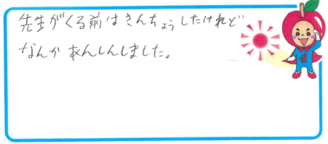 先生がくる前はきんちょうしたけれど
なんかあんしんしました。